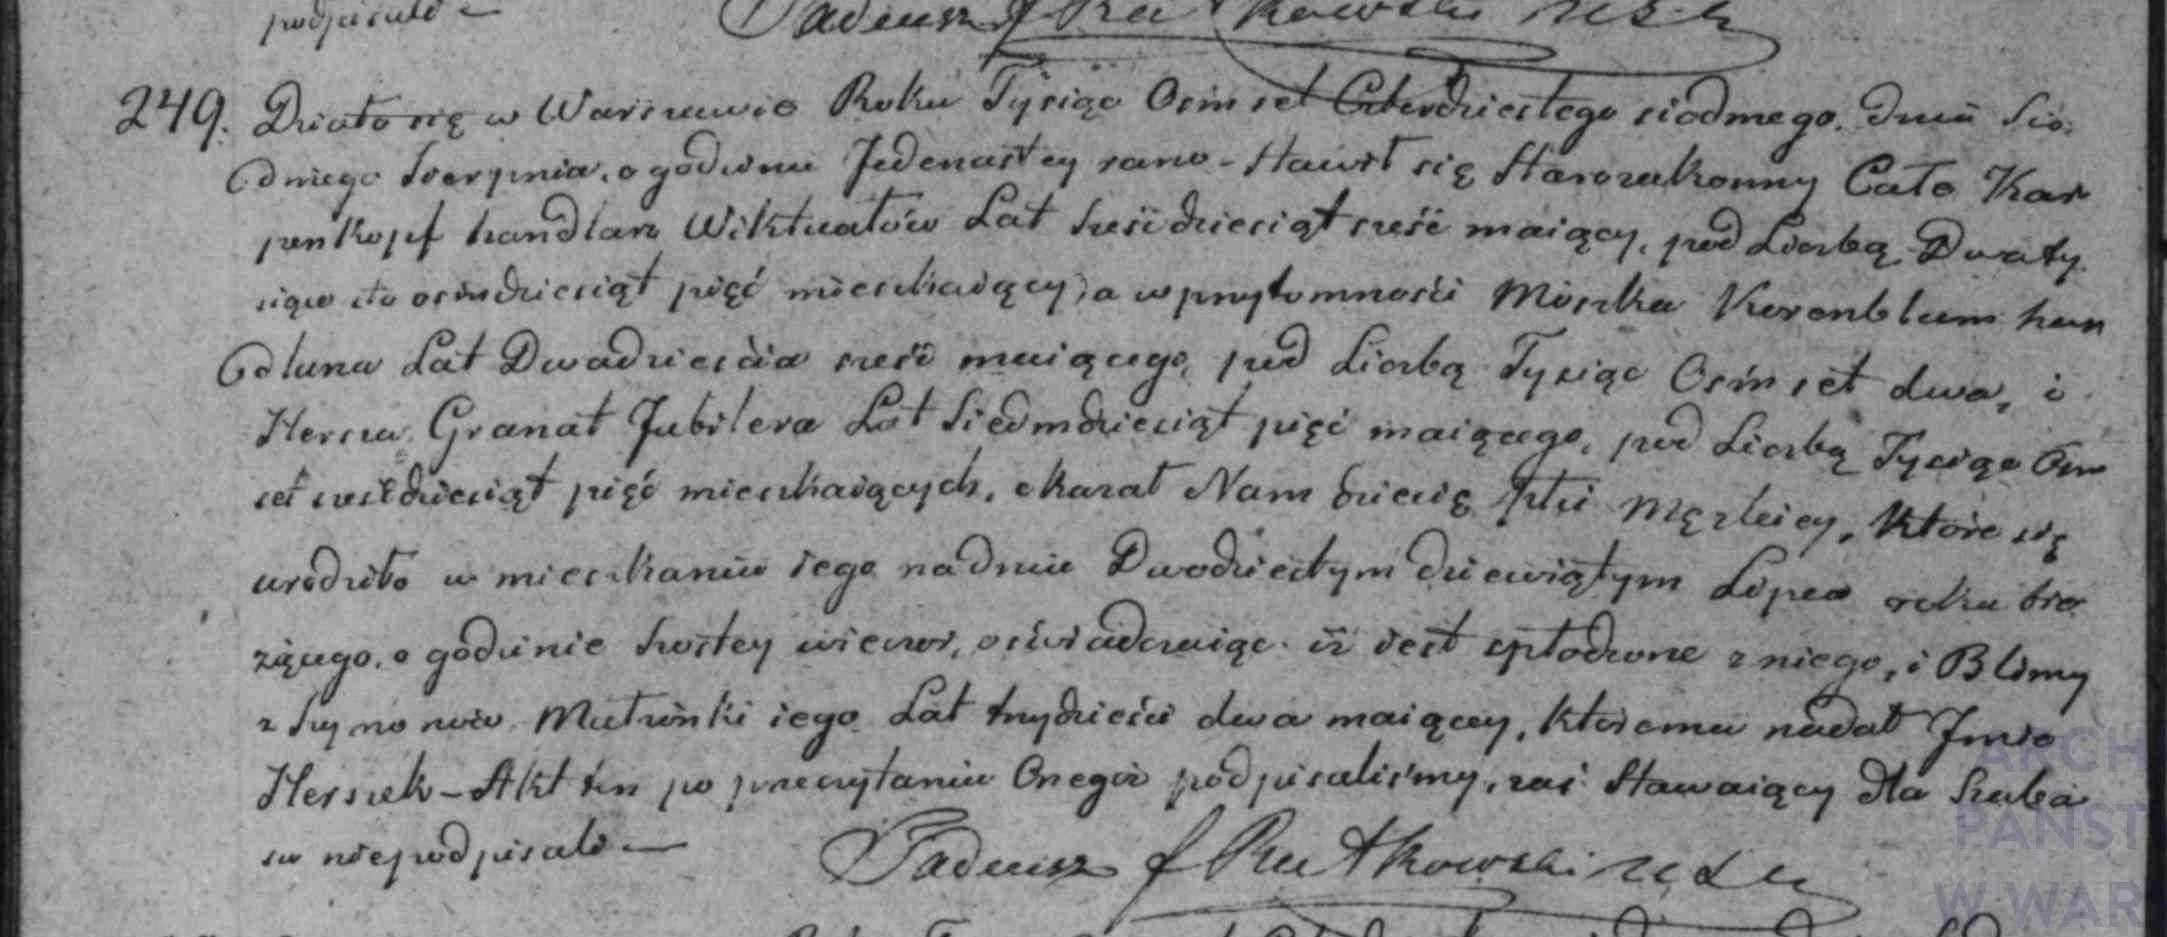 podpisali —
Tadeusz J Rutkowski
249. Działo się w Warszawie Roku Tysiąc Osm set Czterdziestego siodmego, dnia Sio
dmego Sierpnia, o godzinie Jedenastey rano – Stawił się Starozakonny Cało Kar
penkopf handlarz Wiktuałów Lat Sześćdziesiąt sześć maiący, pod Liczbą Dwa ty
siące sto ośmdziesiąt pięć mieszkaiący, a w przytomności Moszka Korenblum han
dlarza Lat Dwadzieścia sześć maiącego, pod Liczbą Tysiąc Ośm set dwa, i
Hersza Granat Jubilera Lat Siedmdziesiąt pięć maiącego, pod Liczbą Tysiąc Ośm
set sześćdziesiąt pięć mieszkaiących, okazał Nam dziecię płci Męzkiey, które się
urodziło w mieszkaniu iego na dniu Dwodziestym dziewiątym Lipca roku bie
żącego, o godzinie Szostey wieczor, oświadczaiąc iż iest spłodzone z niego, i Blimy
z Szymonow Małżonki iego Lat trzydzieści dwa maiącey, któremu nadał Jmie
Herszek – Akt ten po przeczytaniu Onegoż podpisaliśmy, zaś Stawaiący dla Szaba
su niepodpisali —
Tadeusz J Rutkowski
ARCH
PAŃST
W WAR